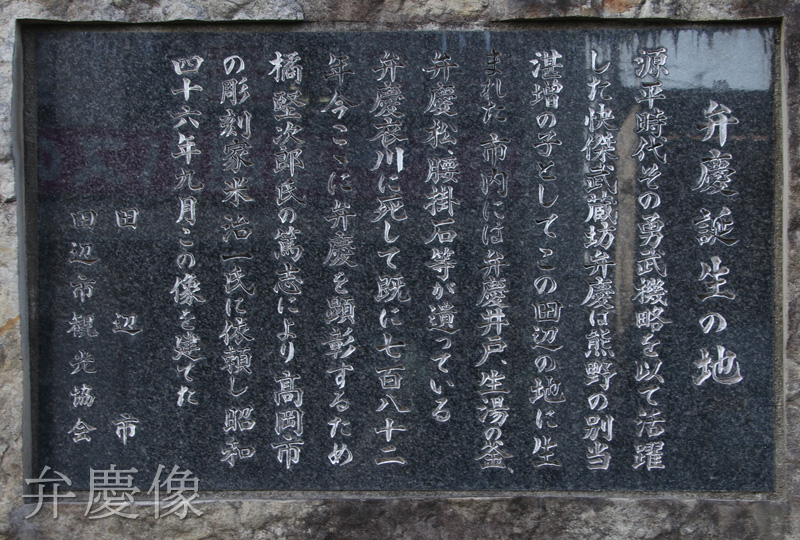 弁慶誕生の地
源平時代その勇武機略を以て活躍
した快傑武蔵坊弁慶は熊野の別当
湛増の子としてこの田辺の地に生
まれた 市内には弁慶井戸、生湯の釜、
弁慶松、腰掛石等が遺っている
弁慶衣川に死して既に七百八十二
年今ここに弁慶を顕彰するため
橘堅次郎氏の篤志により高岡市
の彫刻家米治一氏に依頼し昭和
四十六年九月この像を建てた
田辺市
田辺市観光協会
弁慶像